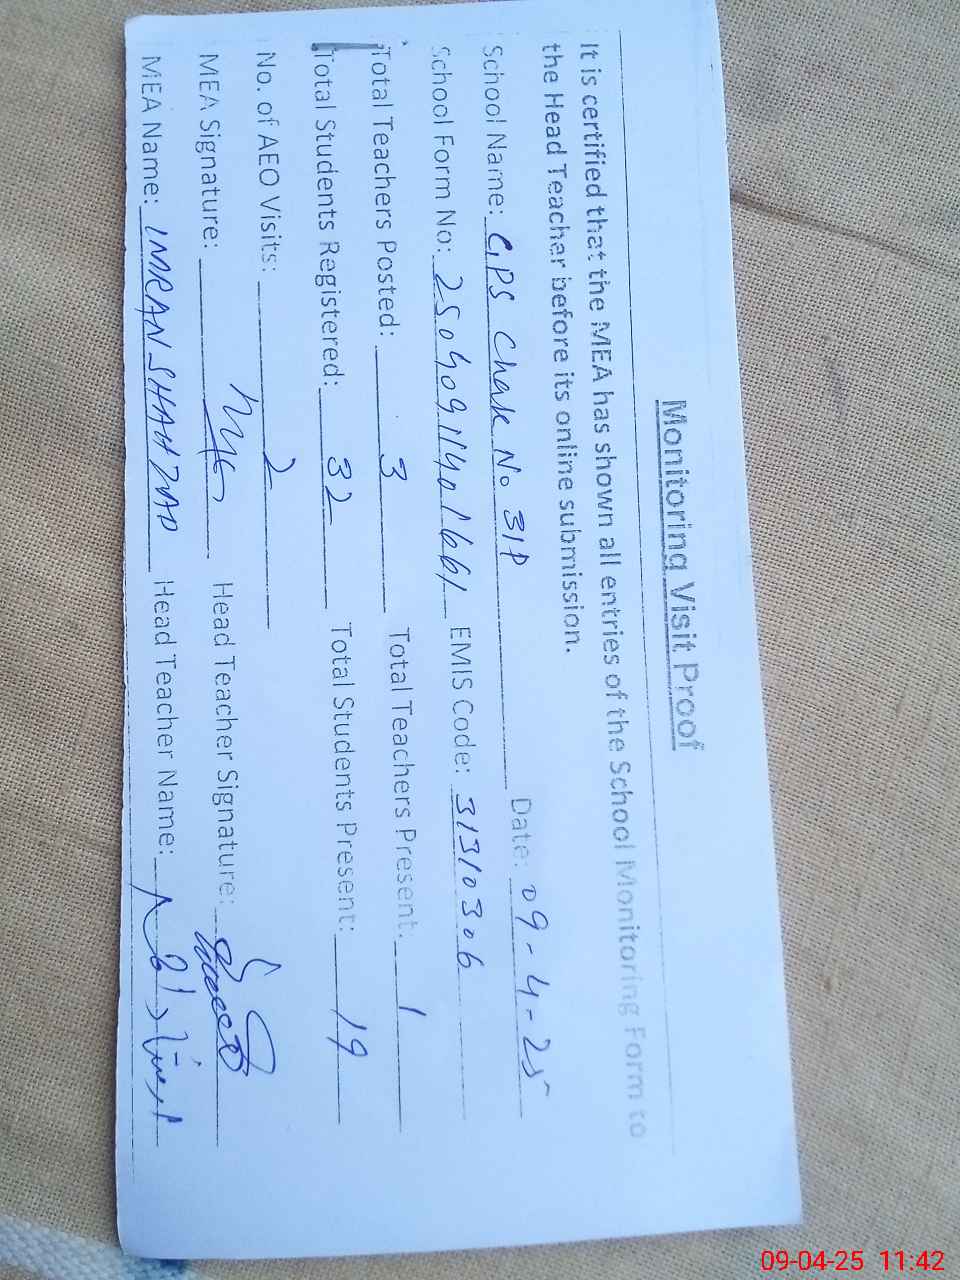 Monitoring Visit Proof
It is certified that the MEA has shown all entries of the School Monitoring Form to
the Head Teacher before its online submission.
School Name: GPS Chak No 31P Date: 09-4-25
School Form No: EMIS Code: 31310306
Total Teachers Posted: 3 Total Teachers Present: 1
Total Students Registered: 32 Total Students Present: 19
No. of AEO Visits: 2
MEA Signature: Head Teacher Signature:
MEA Name: IMRAN SHAHZAD Head Teacher Name:
09-04-25 11:42